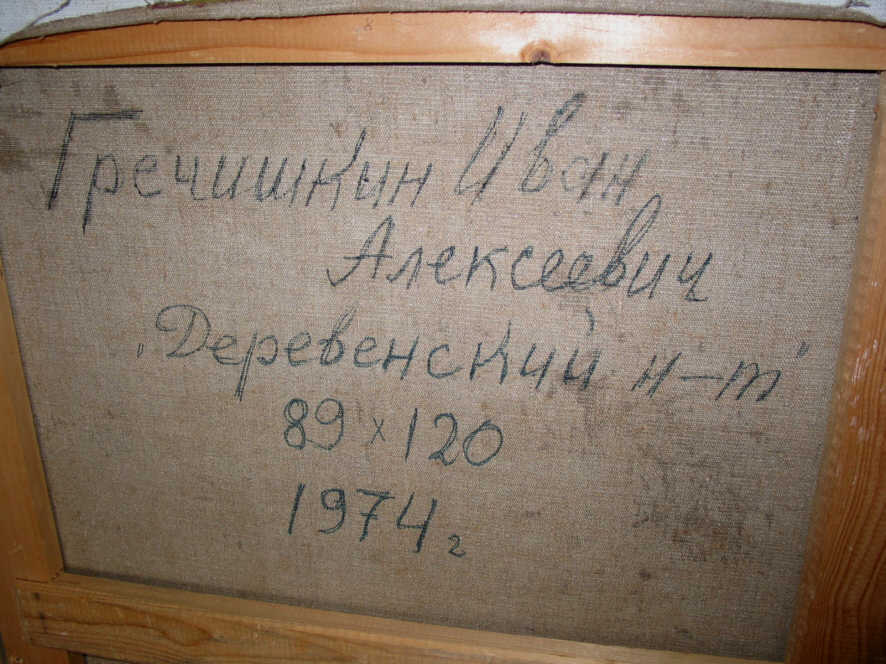 Гречишкин Иван
Алексеевич
"Деревенский н-т"
89 х 120
1974 г